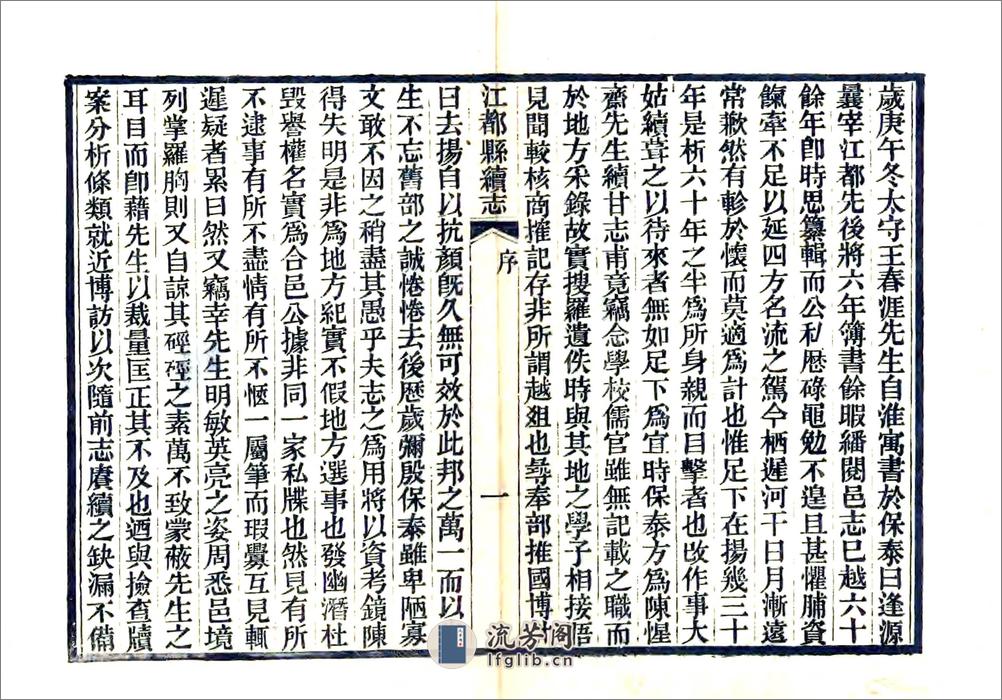 歲庚午冬太守王春涯先生自淮寓書於保泰曰逢源
曩宰江都先後將六年簿書餘暇繙閱邑志已越六十
餘年卽時思纂輯而公私歷碌黽勉不遑且甚懼脯資
餼牽不足以延四方名流之駕今栖遲河干日月漸遠
常歉然有軫於懷而莫適爲計也惟足下在揚幾三十
年是析六十年之半爲所身親而目擊者也改作事大
姑續葺之以待來者無如足下爲宜時保泰方爲陳惺
齋先生續甘志甫竟竊念學校儒官雖無記載之職而
於地方采錄故實搜羅遺佚時與其地之學子相接悟
見聞較核商搉記存非所謂越俎也尋奉部推國博計
江都縣續志
序
一
日去揚自以抗顏旣久無可效於此邦之萬一而以
生不忘舊部之誠惓惓去後歷歲彌殷保泰雖卑陋寡
文敢不因之稍盡其愚乎夫志之爲用將以資考鏡陳
得失明是非爲地方紀實不假地方選事也發幽潛杜
毀譽權名實爲合邑公據非同一家私牒也然見有所
不逮事有所不盡情有所不愜一屬筆而瑕釁互見輒
遲疑者累日然又竊幸先生明敏英亮之姿周悉邑境
列掌羅胸則又自諒其硜硜之素萬不致蒙蔽先生之
耳目而卽藉先生以裁量匡正其不及也迺與撿查牘
案分析條類就近博訪以次隨前志賡續之缺漏不備
流芳閣
lfglib.cn